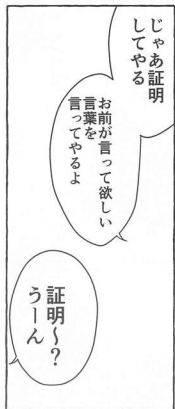 じゃあ証明
してやる
お前が言って欲しい
言葉を
言ってやるよ
証明～?
うーん